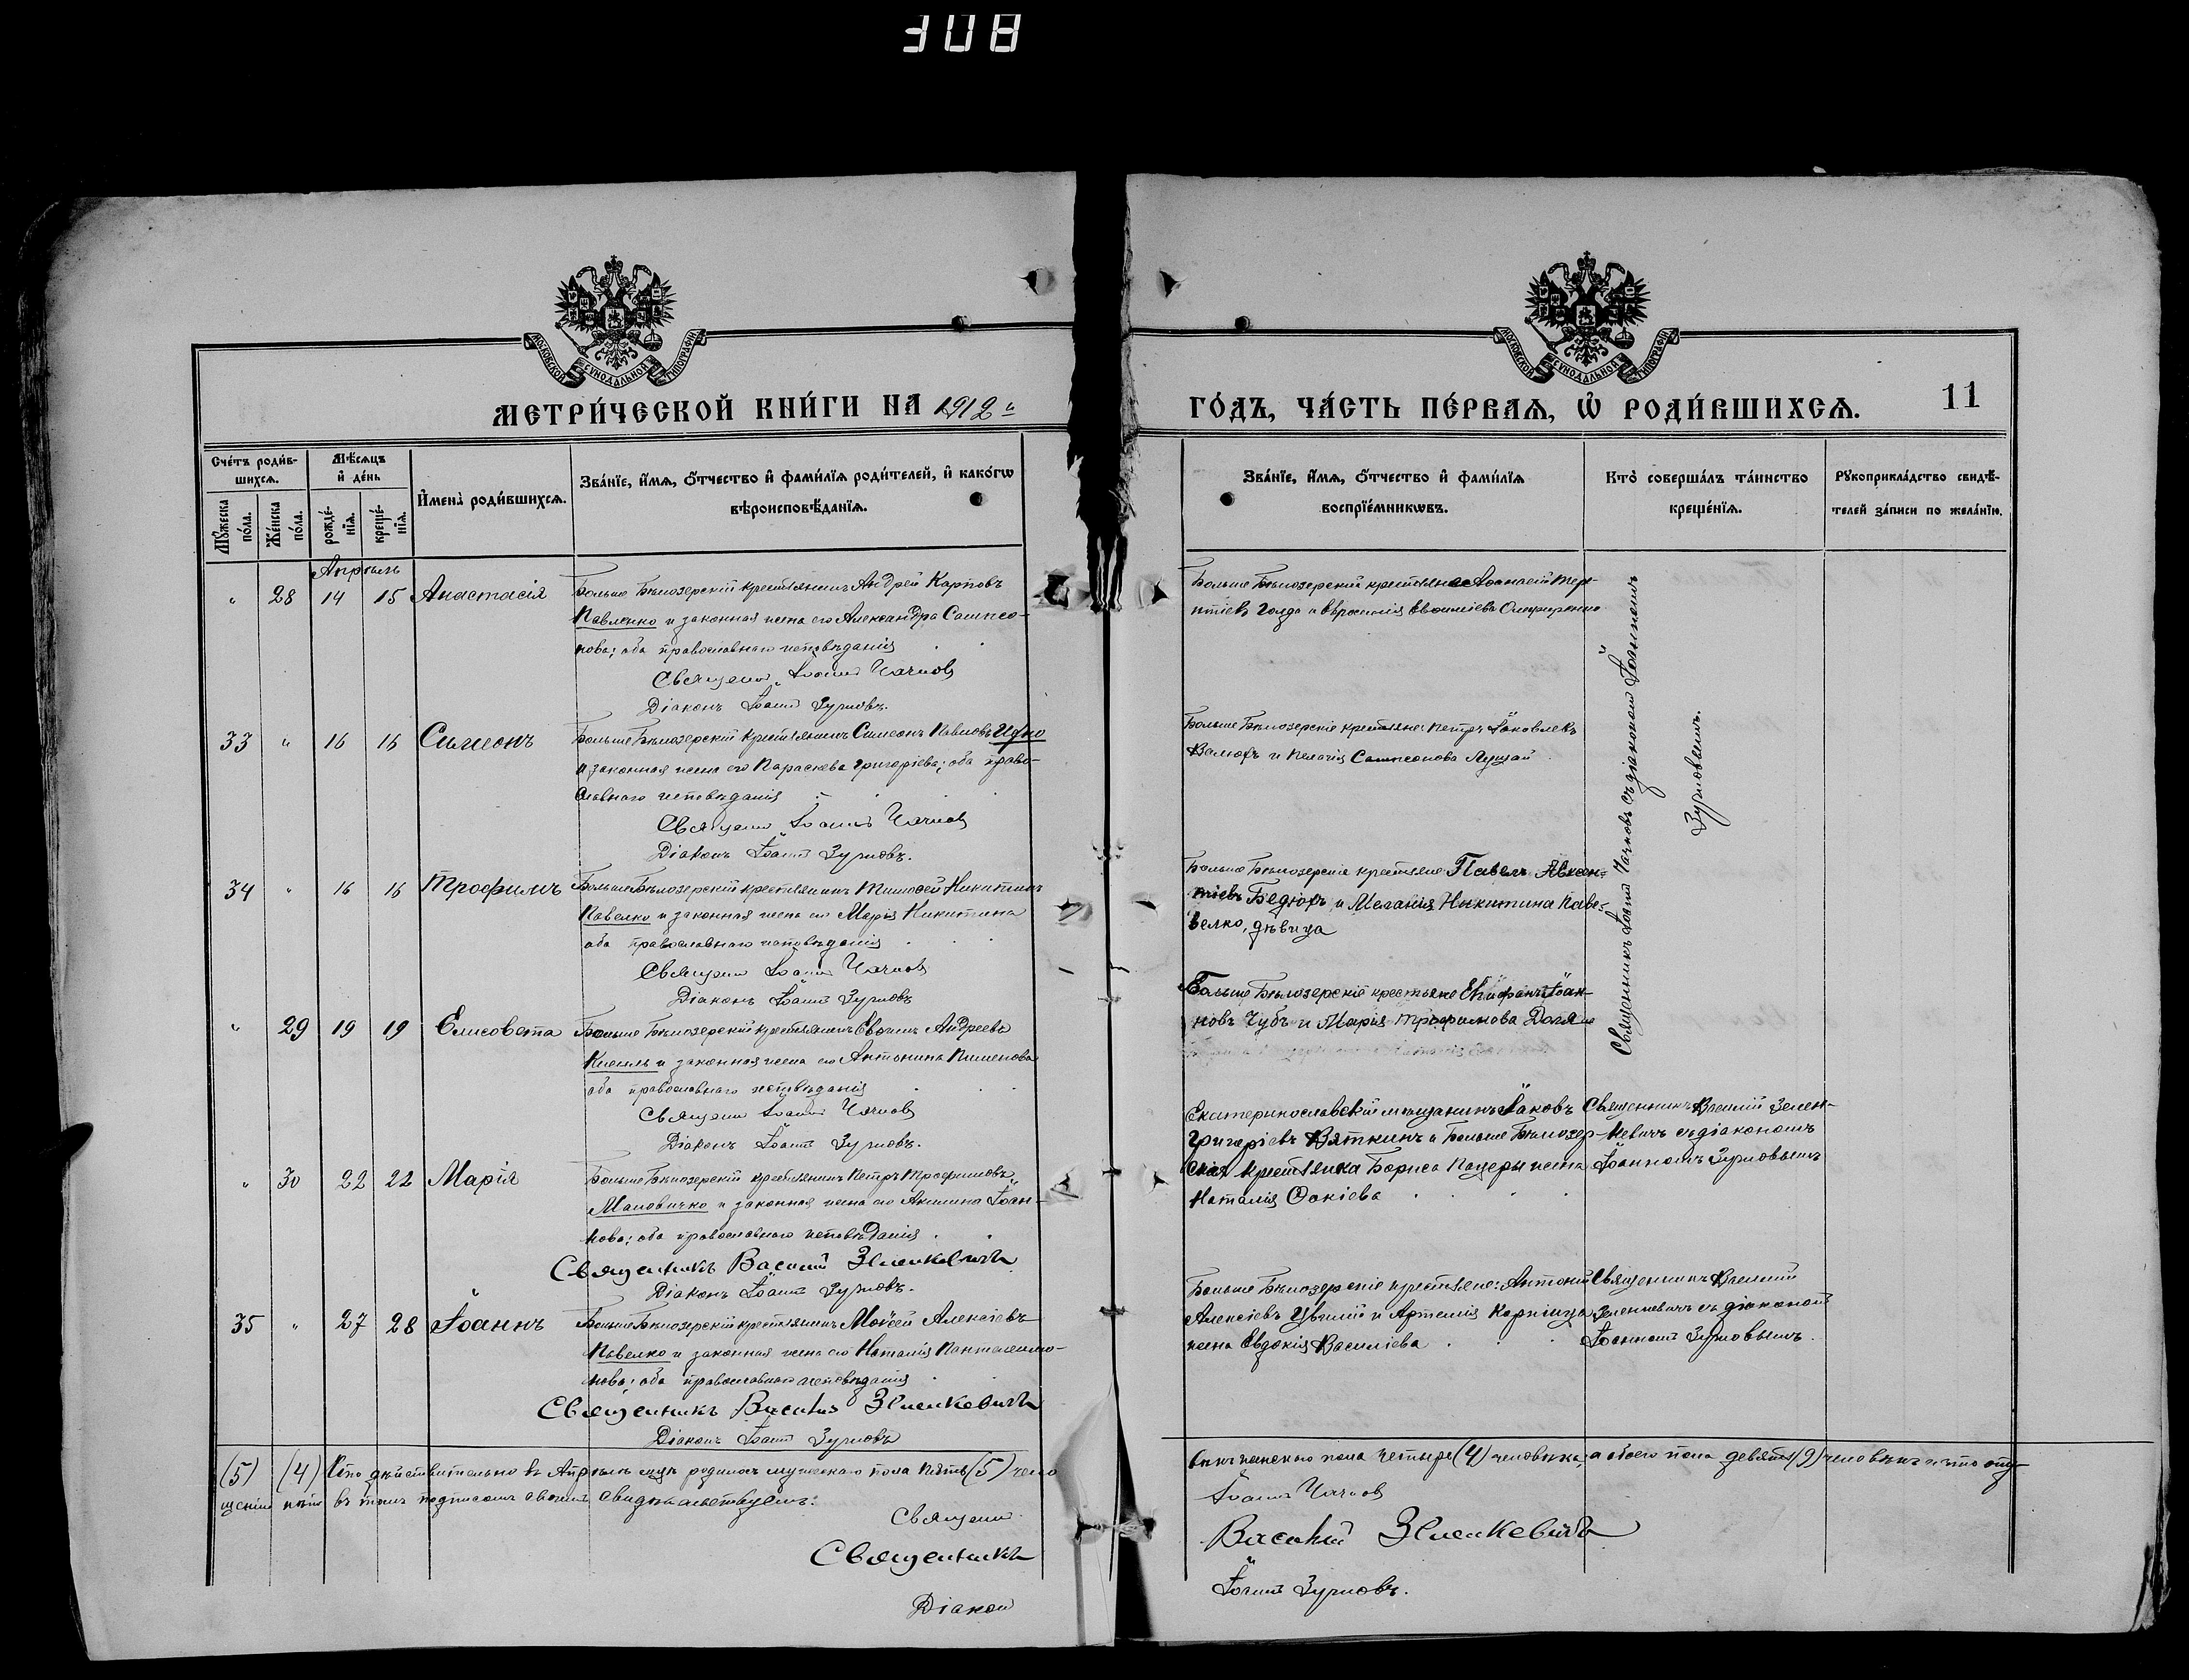 308
МОСКОВСКОЙ СУНОДАЛЬНОЙ ТИПОГРАФІИ
МОСКОВСКОЙ СУНОДАЛЬНОЙ ТИПОГРАФІИ
МЕТРИ́ЧЕСКОЙ КНИ́ГИ НА 1912 "
ГО́ДЪ, ЧА́СТЬ ПЕ́РВАѦ, Ѡ РОДИ́ВШИХСѦ.
11
Сче́тъ роди́в-
шихсѧ.
Мꙋ́жеска по́ла.
Же́нска по́ла.
Мѣ́сѧцъ
и де́нь
рожде́-
нїѧ.
креще́-
нїѧ.
И́мена роди́вшихсѧ.
Зва́нїе, и́мѧ, ѻ́тчество и фами́лїѧ роди́телей, и како́гѡ
вѣроисповѣ́данїѧ.
Зва́нїе, и́мѧ, ѻ́тчество и фами́лїѧ
воспрїе́мникѡвъ.
Кто̀ соверша́лъ та́инство
креще́нїѧ.
Рꙋкоприкла́дство свидѣ́-
телей за́писи по жела́нїю.
Апрѣль
" 28 14 15 Анастасія
Больше Бѣлозерскій крестьянинъ Андрей Карповъ
Павленко и законная жена его Александра Сампсо-
нова; оба православнаго исповѣданія
Священ. Іоаннъ Чачковъ
Діаконъ Іоаннъ Зурновъ.
Больше Бѣлозерскіе крестьяне Аѳанасій Тере-
нтіевъ и Евфросинія Евѳиміева
Священникъ Іоаннъ Чачковъ съ діакономъ Іоанномъ
Зурновымъ.
33 " 16 16 Симеонъ
Больше Бѣлозерскій крестьянинъ Симеонъ Павловъ
и законная жена его Параскева Григоріева; оба право-
славнаго исповѣданія
Священ. Іоаннъ Чачковъ
Діаконъ Іоаннъ Зурновъ.
Больше Бѣлозерскіе крестьяне: Петръ Іаковлевъ
Валюхъ и Пелагія Сампсонова Лущай
34 " 16 16 Трофимъ
Больше Бѣлозерскій крестьянинъ Тимоѳей Никитинъ
Павелко и законная жена его Марія Никитина
оба православнаго исповѣданія
Священ. Іоаннъ Чачковъ
Діаконъ Іоаннъ Зурновъ
Больше Бѣлозерскіе крестьяне Павелъ Авксен-
тіевъ Бедюхъ и Меланія Никитина Паве-
велко, дѣвица
" 29 19 19 Елисавета
Больше Бѣлозерскій крестьянинъ Евѳимъ Андреевъ
Кисиль и законная жена его Антонина Пименова
оба православнаго исповѣданія
Священ. Іоаннъ Чачковъ
Діаконъ Іоаннъ Зурновъ.
Больше Бѣлозерскіе крестьяне Епифанъ Іоан-
новъ Чубъ и Марія Трофимова
" 30 22 22 Марія
Больше Бѣлозерскій крестьянинъ Петръ Трофимовъ
Маловичко и законная жена его Акилина Іоан-
нова; оба православнаго исповѣданія
Священникъ Василій Зеленкевичъ
Діаконъ Іоаннъ Зурновъ.
Екатеринославскій мѣщанинъ Іаковъ
Григоріевъ Вяткинъ и Больше Бѣлозер-
ская крестьянка Бориса Пацеры жена
Наталія Ѳокіева
Священникъ Василій Зелен-
кевичъ съ діакономъ
Іоанномъ Зурновымъ
35 " 27 28 Іоаннъ
Больше Бѣлозерскій крестьянинъ Моисей Алексіевъ
Павелко и законная жена его Наталія Пантелеимо-
нова; оба православнаго исповѣданія
Священникъ Василій Зеленкевичъ
Діаконъ Іоаннъ Зурновъ
Больше Бѣлозерскіе крестьяне: Антоній
Алексіевъ и Артемія
жена Евдокія Василіева
Священникъ Василій
Зеленкевичъ съ діакономъ
Іоанномъ Зурновымъ.
(5) (4) Что дѣйствительно въ Апрѣлѣ мцѣ родилось мужескаго пола пять (5) чело
вѣкъ женскаго пола четыре (4) человѣка, а обоего пола девять (9) человѣкъ и что опу-
щенія нѣтъ въ томъ подписомъ своимъ свидѣтельствуемъ:
Священ. Іоаннъ Чачковъ
Священникъ Василій Зеленкевичъ
Діакон Іоаннъ Зурновъ.